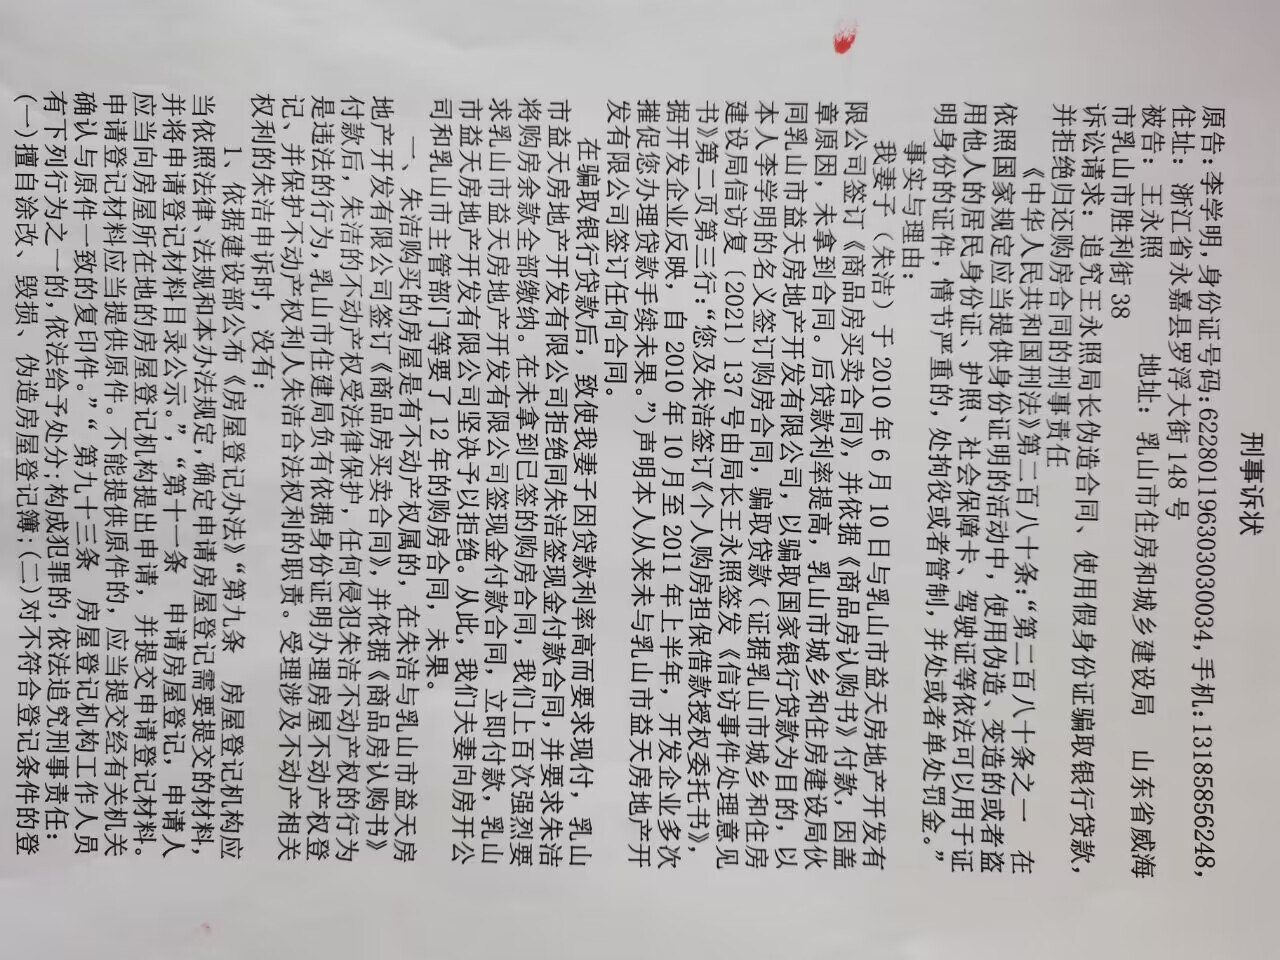 刑事诉状
原告:李学明,身份证号码:622801196303030034,手机:13185856248,
住址:浙江省永嘉县罗浮大街 148 号
被告: 王永照 地址: 乳山市住房和城乡建设局 山东省威海
市乳山市胜利街 38
诉讼请求:追究王永照局长伪造合同、使用假身份证骗取银行贷款,
并拒绝归还购房合同的刑事责任
《中华人民共和国刑法》第二百八十条:“第二百八十条之一 在
依照国家规定应当提供身份证明的活动中,使用伪造、变造的或者盗
用他人的居民身份证、护照、社会保障卡、驾驶证等依法可以用于证
明身份的证件,情节严重的,处拘役或者管制,并处或者单处罚金。”
事实与理由:
我妻子(朱洁)于 2010 年 6 月 10 日与乳山市益天房地产开发有
限公司签订《商品房买卖合同》,并依据《商品房认购书》付款,因盖
章原因,未拿到合同。后贷款利率提高,乳山市城乡和住房建设局伙
同乳山市益天房地产开发有限公司,以骗取国家银行贷款为目的,以
本人李学明的名义签订购房合同,骗取贷款(证据乳山市城乡和住房
建设局信访复〔2021〕137 号由局长王永照签发《信访事件处理意见
书》第二页第三行:“您及朱洁签订《个人购房担保借款授权委托书》,
据开发企业反映,自 2010 年 10 月至 2011 年上半年,开发企业多次
催促您办理贷款手续未果。”)声明本人从来未与乳山市益天房地产开
发有限公司签订任何合同。
在骗取银行贷款后,致使我妻子因贷款利率高而要求现付,乳山
市益天房地产开发有限公司拒绝同朱洁签现金付款合同,并要求朱洁
将购房余款全部缴纳。在未拿到已签的购房合同,我们上百次强烈要
求乳山市益天房地产开发有限公司签现金付款合同,立即付款,乳山
市益天房地产开发有限公司坚决予以拒绝。从此,我们夫妻向房开公
司和乳山市主管部门等要了 12 年的购房合同,未果。
一、朱洁购买的房屋是有不动产权属的,在朱洁与乳山市益天房
地产开发有限公司签订《商品房买卖合同》,并依据《商品房认购书》
付款后,朱洁的不动产权受法律保护,任何侵犯朱洁不动产权的行为
是违法的行为,乳山市住建局负有依据身份证明办理房屋不动产权登
记、并保护不动产权利人朱洁合法权利的职责。受理涉及不动产相关
权利的朱洁申诉时,没有:
1、依据建设部公布《房屋登记办法》“第九条 房屋登记机构应
当依照法律、法规和本办法规定,确定申请房屋登记需要提交的材料,
并将申请登记材料目录公示。”,“第十一条 申请房屋登记,申请人
应当向房屋所在地的房屋登记机构提出申请,并提交申请登记材料。
申请登记材料应当提供原件。不能提供原件的,应当提交经有关机关
确认与原件一致的复印件。”“第九十三条 房屋登记机构工作人员
有下列行为之一的,依法给予处分;构成犯罪的,依法追究刑事责任:
(一)擅自涂改、毁损、伪造房屋登记簿;(二)对不符合登记条件的登